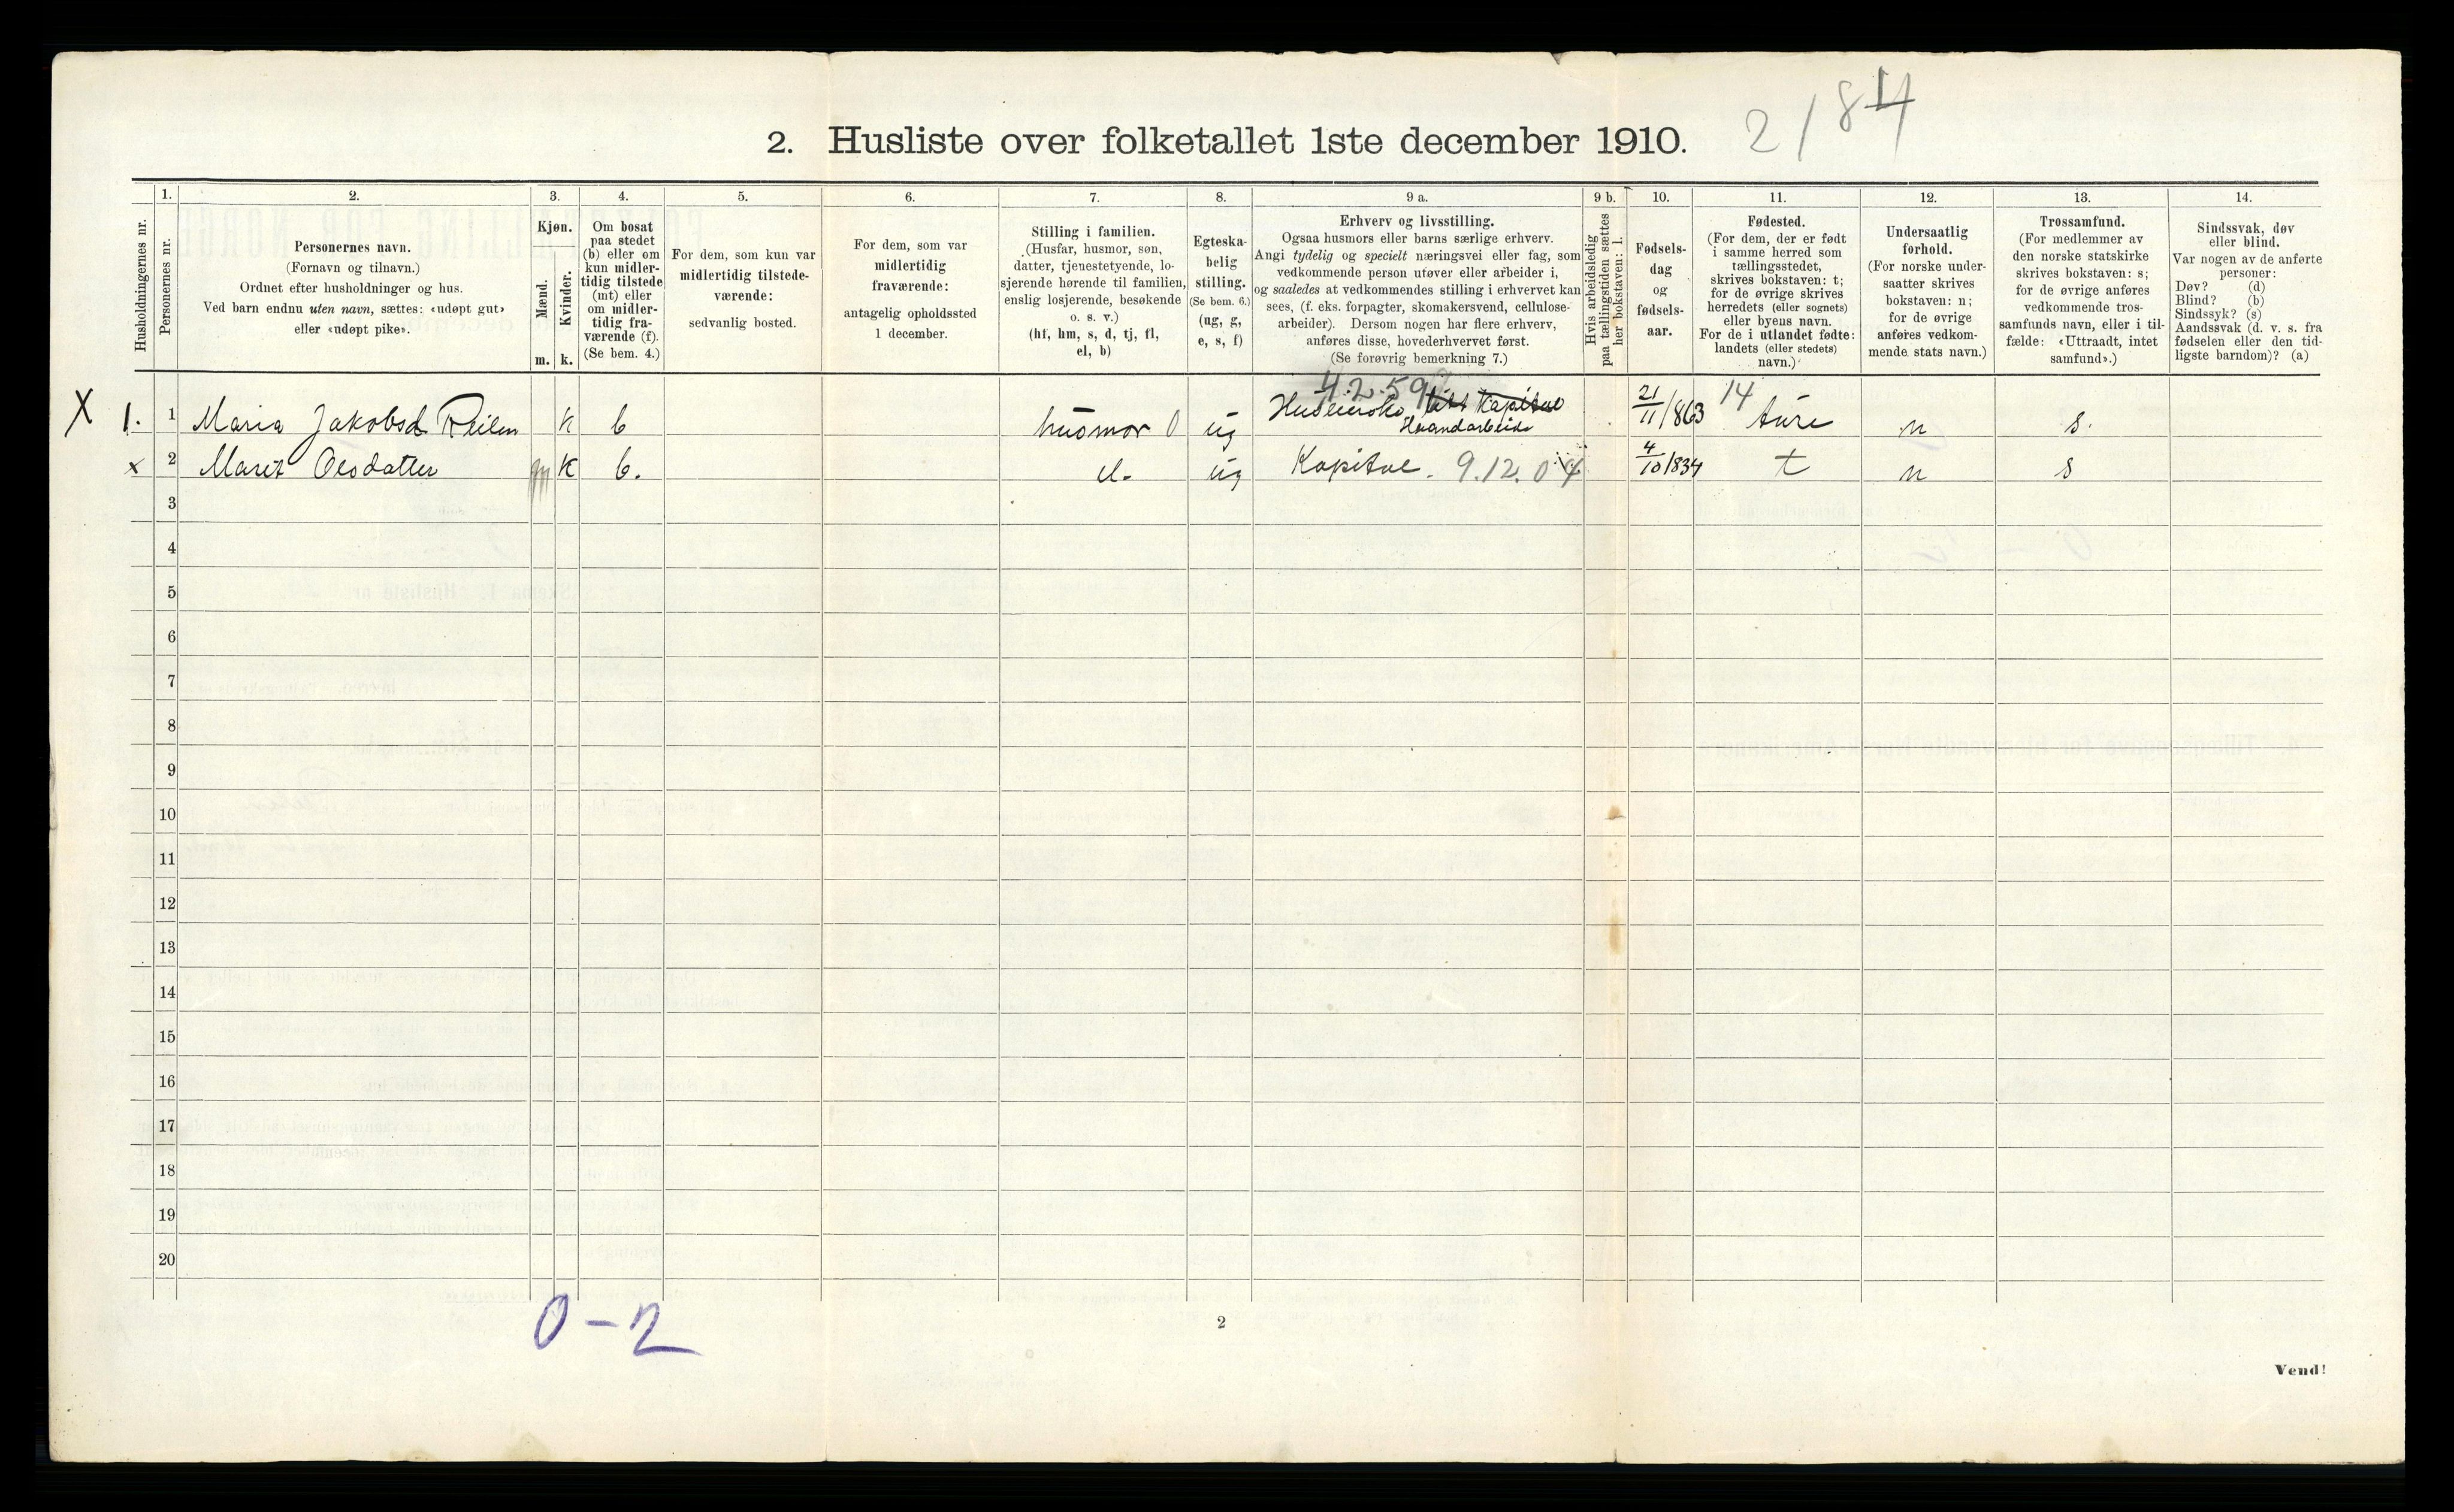 2. Husliste over folketallet 1ste december 1910. 2/84
1. 2. 3. 4. 5. 6. 7. 8. 9 a. 9 b. 10. 11. 12. 13. 14.
Husholdningernes nr.
Personernes nr.
Personernes navn.
(Fornavn og tilnavn.)
Ordnet efter husholdninger og hus.
Ved barn endnu uten navn, sættes: «udøpt gut»
eller «udøpt pike».
Kjøn.
Mænd.
Kvinder.
m. k.
Om bosat
paa stedet
(b) eller om
kun midler-
tidig tilstede
(mt) eller
om midler-
tidig fra-
værende (f).
(Se bem. 4.)
For dem, som kun var
midlertidig tilstede-
værende:
sedvanlig bosted.
For dem, som var
midlertidig
fraværende:
antagelig opholdssted
1 december.
Stilling i familien.
(Husfar, husmor, søn,
datter, tjenestetyende, lo-
sjerende hørende til familien,
enslig losjerende, besøkende
o. s. v.)
(hf, hm, s, d, tj, fl,
el, b)
Egteska-
belig
stilling.
(Se bem. 6.)
(ug, g,
e, s, f)
Erhverv og livsstilling.
Ogsaa husmors eller barns særlige erhverv.
Angi tydelig og specielt næringsvei eller fag, som
vedkommende person utøver eller arbeider i,
og saaledes at vedkommendes stilling i erhvervet kan
sees, (f. eks. forpagter, skomakersvend, cellulose-
arbeider). Dersom nogen har flere erhverv,
anføres disse, hovederhvervet først.
(Se forøvrig bemerkning 7.)
Hvis arbeidsledig
paa tællingstiden sættes
her bokstaven: l.
Fødsels-
dag
og
fødsels-
aar.
Fødested.
(For dem, der er født
i samme herred som
tællingsstedet,
skrives bokstaven: t;
for de øvrige skrives
herredets (eller sognets)
eller byens navn.
For de i utlandet fødte:
landets (eller stedets)
navn.)
Undersaatlig
forhold.
(For norske under-
saatter skrives
bokstaven: n;
for de øvrige
anføres vedkom-
mende stats navn.)
Trossamfund.
(For medlemmer av
den norske statskirke
skrives bokstaven: s;
for de øvrige anføres
vedkommende tros-
samfunds navn, eller i til-
fælde: «Uttraadt, intet
samfund».)
Sindssvak, døv
eller blind.
Var nogen av de anførte
personer:
Døv? (d)
Blind? (b)
Sindssyk? (s)
Aandssvak (d. v. s. fra
fødselen eller den tid-
ligste barndom)? (a)
4.2.59 14
X 1. 1 Maria Jakobsd Reilen k b husmor 0 ug litt Kapital 21/11/863 Aure n s.
Haandarbeide
x 2 Marit Olsdatter k b. el. ug Kapital. 9.12.04 4/10/834 t n s
3
4
5
6
7
8
9
10
11
12
13
14
15
16
17
18
19
20
0-2
2
Vend!